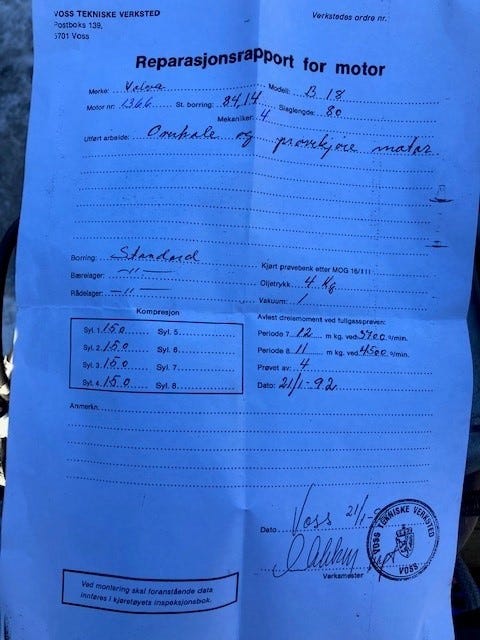 VOSS TEKNISKE VERKSTED
Postboks 139,
5701 Voss
Verkstedes ordre nr.
Reparasjonsrapport for motor
Merke: Volvo Modell: B 18
Motor nr: 1366 St. borring: 84,14 Slaglengde: 80
Mekaniker: 4
Utført arbeide: Overhale og prøvekjøre motor
Borring: Standard
Bærelager: —ıı—
Rådelager: —ıı—
Kjørt prøvebenk etter MOG 16/111
Oljetrykk: 4 Kg
Vakuum: /
Kompresjon
Syl. 1. 150 Syl. 5
Syl. 2. 150 Syl. 6
Syl. 3. 150 Syl. 7
Syl. 4. 150 Syl. 8
Avlest dreiemoment ved fullgassprøven:
Periode 7 12 m kg. ved 3400 o/min.
Periode 8 11 m kg. ved 4500 o/min.
Prøvet av: 4
Dato: 21/1-92
Anmerkn.
Dato Voss 21/1-9
Verksmester
VOSS TEKNISKE VERKSTED
VOSS
Ved montering skal foranstående data
innføres i kjøretøyets inspeksjonsbok.